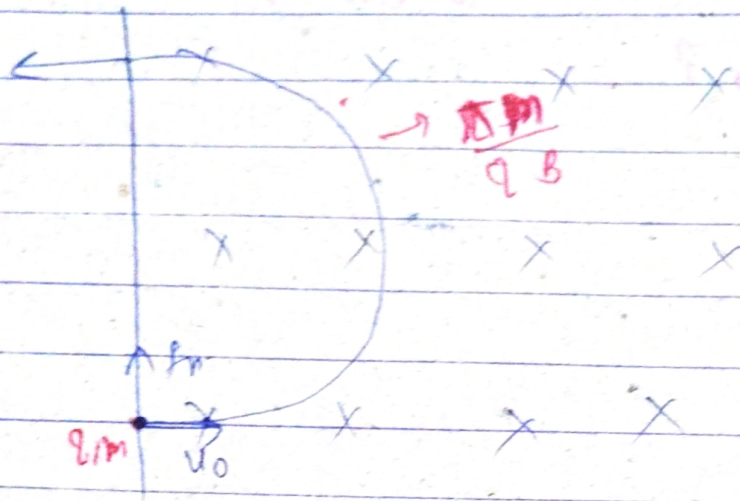 πm
qB
fm
q,m
v₀